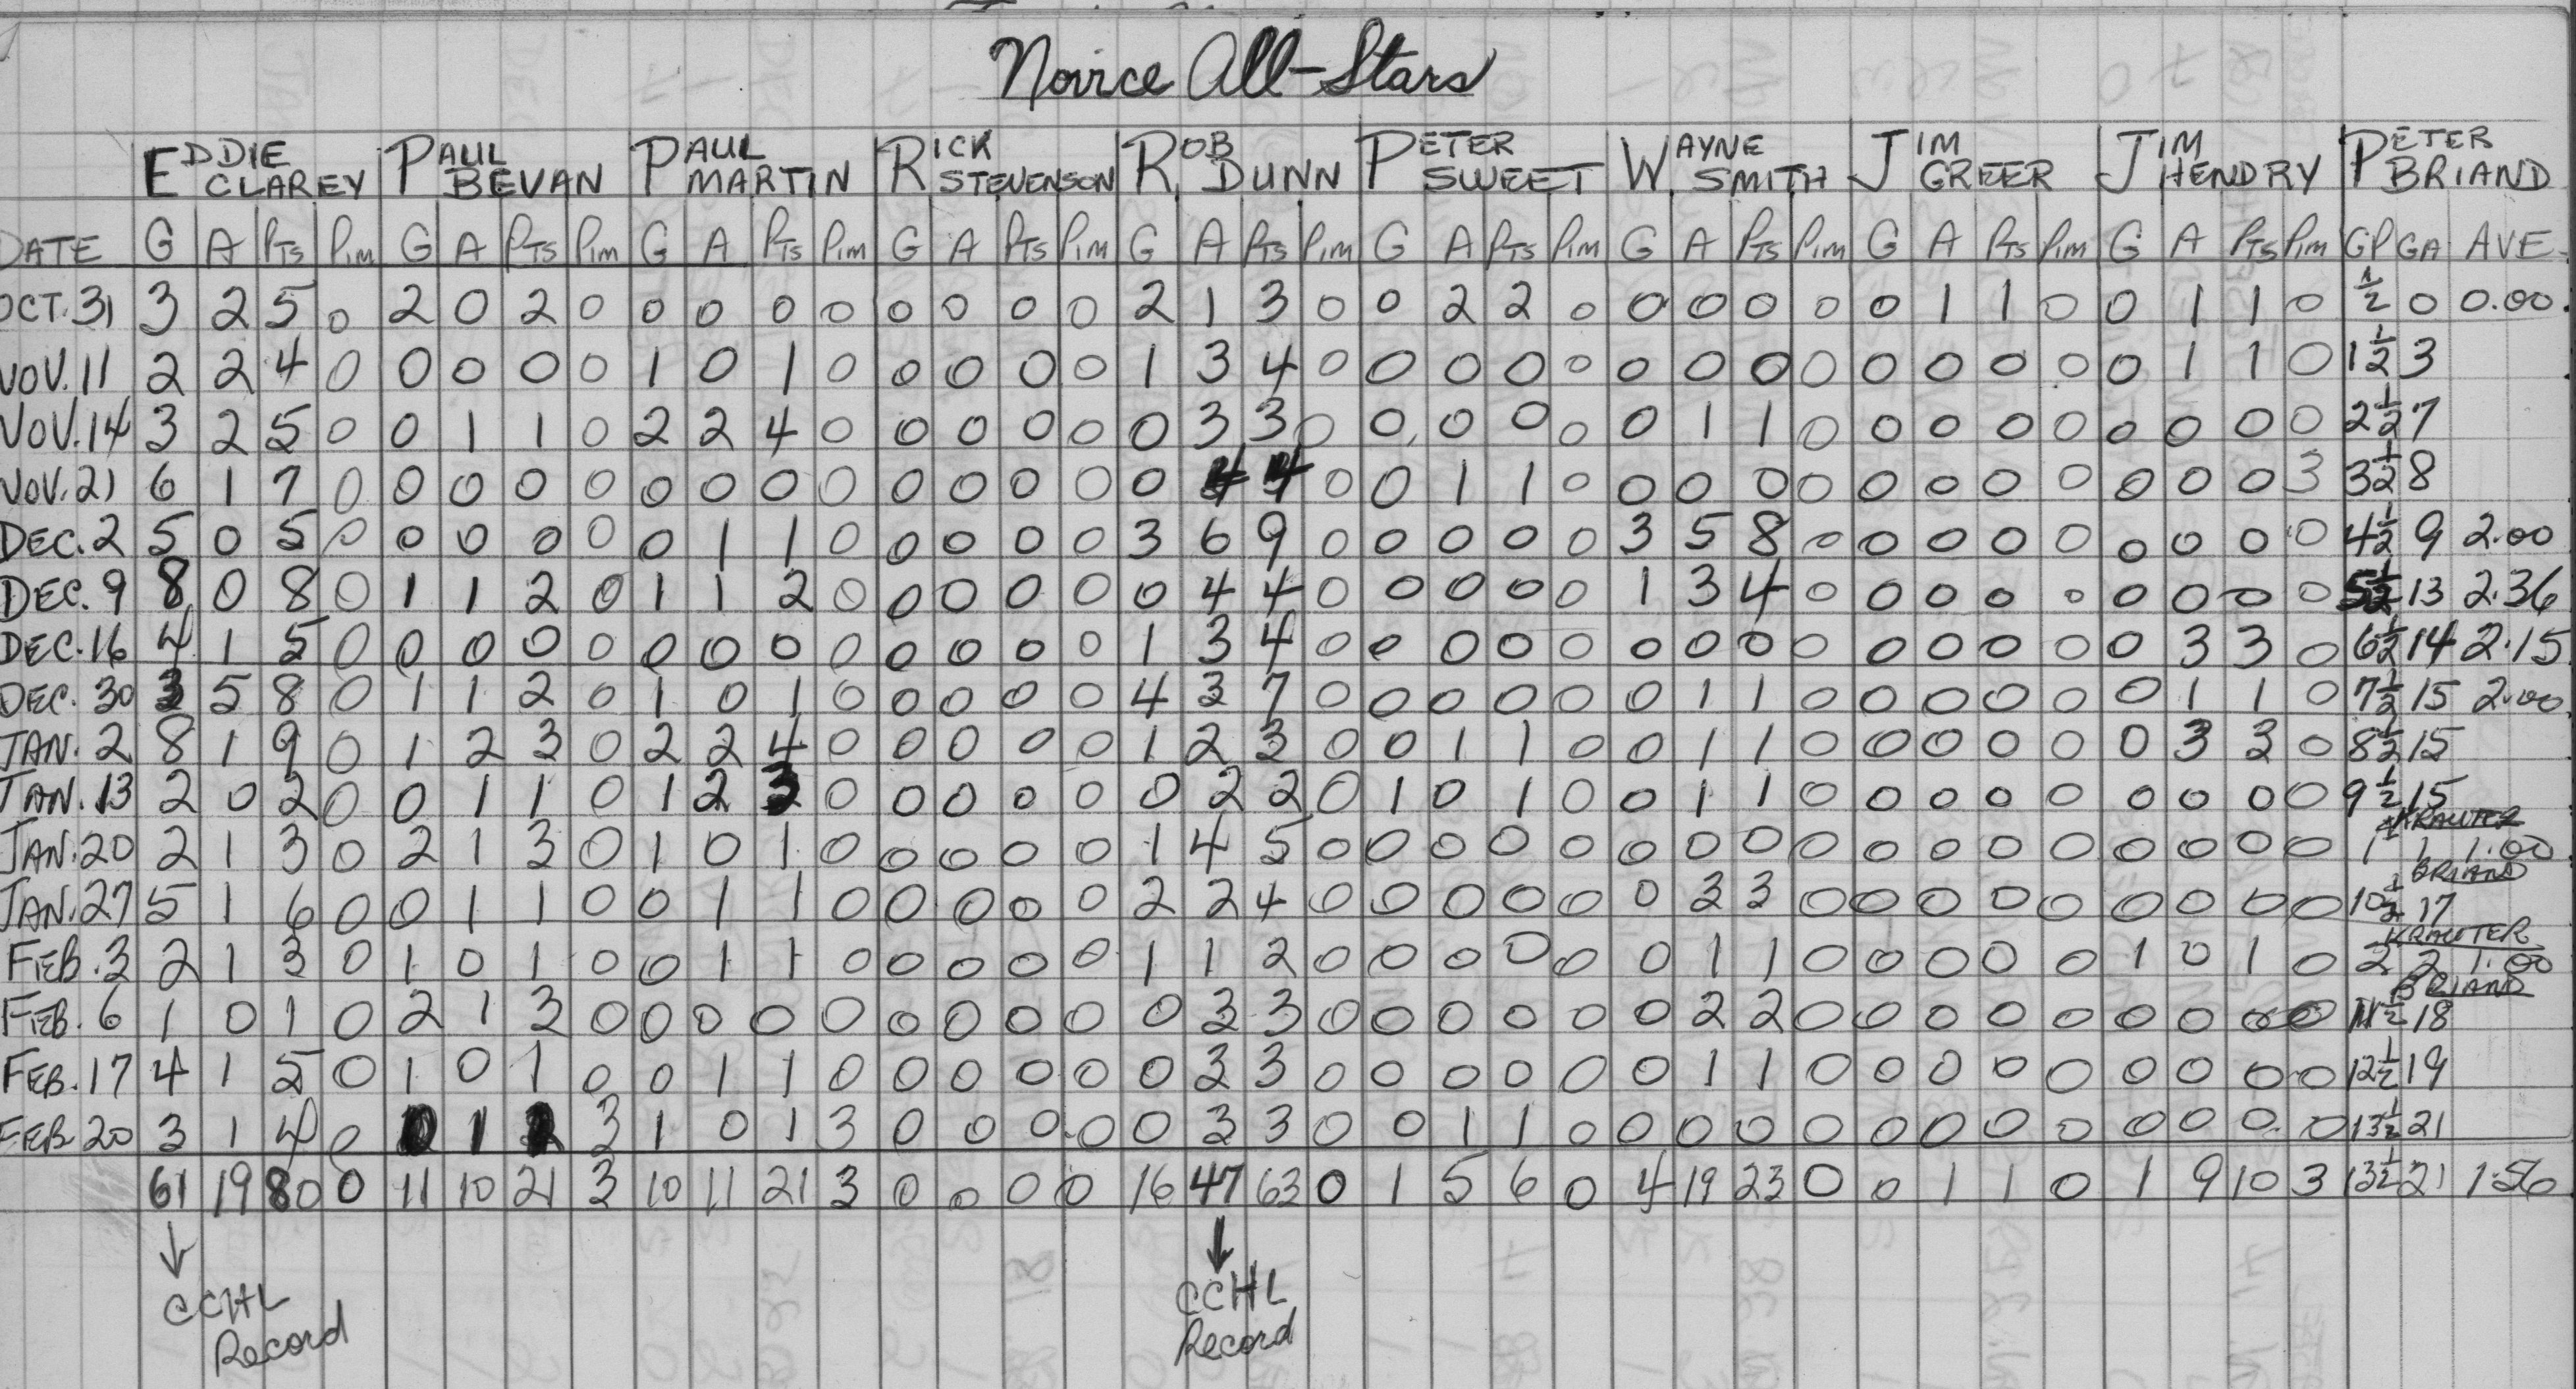 Novice All-Stars
EDDIE CLAREY PAUL BEVAN PAUL MARTIN RICK STEVENSON ROB DUNN PETER SWEET WAYNE SMITH JIM GREER JIM HENDRY PETER BRIAND
DATE G A PTS PIM G A PTS PIM G A PTS PIM G A PTS PIM G A PTS PIM G A PTS PIM G A PTS PIM G A PTS PIM G A PTS PIM GP GA AVE.
OCT. 31 3 2 5 0 2 0 2 0 0 0 0 0 0 0 0 0 2 1 3 0 0 2 2 0 0 0 0 0 0 1 1 0 0 1 1 0 1/2 0 0.00
NOV. 11 2 2 4 0 0 0 0 0 1 0 1 0 0 0 0 0 1 3 4 0 0 0 0 0 0 0 0 0 0 0 0 0 0 1 1 0 1 1/2 3
NOV. 14 3 2 5 0 0 1 1 0 2 2 4 0 0 0 0 0 0 3 3 0 0 0 0 0 0 1 1 0 0 0 0 0 0 0 0 0 2 1/2 7
NOV. 21 6 1 7 0 0 0 0 0 0 0 0 0 0 0 0 0 0 4 4 0 0 1 1 0 0 0 0 0 0 0 0 0 0 0 0 3 3 1/2 8
DEC. 2 5 0 5 0 0 0 0 0 0 1 1 0 0 0 0 0 3 6 9 0 0 0 0 0 3 5 8 0 0 0 0 0 0 0 0 0 4 1/2 9 2.00
DEC. 9 8 0 8 0 1 1 2 0 1 1 2 0 0 0 0 0 0 4 4 0 0 0 0 0 1 3 4 0 0 0 0 0 0 0 0 0 5 1/2 13 2.36
DEC. 16 4 1 5 0 0 0 0 0 0 0 0 0 0 0 0 0 1 3 4 0 0 0 0 0 0 0 0 0 0 0 0 0 0 3 3 0 6 1/2 14 2.15
DEC. 30 3 5 8 0 1 1 2 0 1 0 1 0 0 0 0 0 4 3 7 0 0 0 0 0 0 1 1 0 0 0 0 0 0 1 1 0 7 1/2 15 2.00
JAN. 2 8 1 9 0 1 2 3 0 2 2 4 0 0 0 0 0 1 2 3 0 0 1 1 0 0 1 1 0 0 0 0 0 0 3 3 0 8 1/2 15
JAN. 13 2 0 2 0 0 1 1 0 1 2 3 0 0 0 0 0 0 2 2 0 1 0 1 0 0 1 1 0 0 0 0 0 0 0 0 0 9 1/2 15
KRAUTER
JAN. 20 2 1 3 0 2 1 3 0 1 0 1 0 0 0 0 0 1 4 5 0 0 0 0 0 0 0 0 0 0 0 0 0 0 0 0 0 1 1 1.00
BRIAND
JAN. 27 5 1 6 0 0 1 1 0 0 1 1 0 0 0 0 0 2 2 4 0 0 0 0 0 0 3 3 0 0 0 0 0 0 0 0 0 10 1/2 17
KRAUTER
FEB. 3 2 1 3 0 1 0 1 0 0 1 1 0 0 0 0 0 1 1 2 0 0 0 0 0 0 1 1 0 0 0 0 0 1 0 1 0 2 2 1.00
BRIAND
FEB. 6 1 0 1 0 2 1 3 0 0 0 0 0 0 0 0 0 0 3 3 0 0 0 0 0 0 2 2 0 0 0 0 0 0 0 0 0 11 1/2 18
FEB. 17 4 1 5 0 1 0 1 0 0 1 1 0 0 0 0 0 0 3 3 0 0 0 0 0 0 1 1 0 0 0 0 0 0 0 0 0 12 1/2 19
FEB 20 3 1 4 0 0 1 3 1 0 1 3 0 0 0 0 0 3 3 0 0 1 1 0 0 0 0 0 0 0 0 0 0 0 0 0 13 1/2 21
61 19 80 0 11 10 21 3 10 11 21 3 0 0 0 0 16 47 63 0 1 5 6 0 4 19 23 0 0 1 1 0 1 9 10 3 13 1/2 21 1.56
↓ CCHL Record
↓ CCHL Record